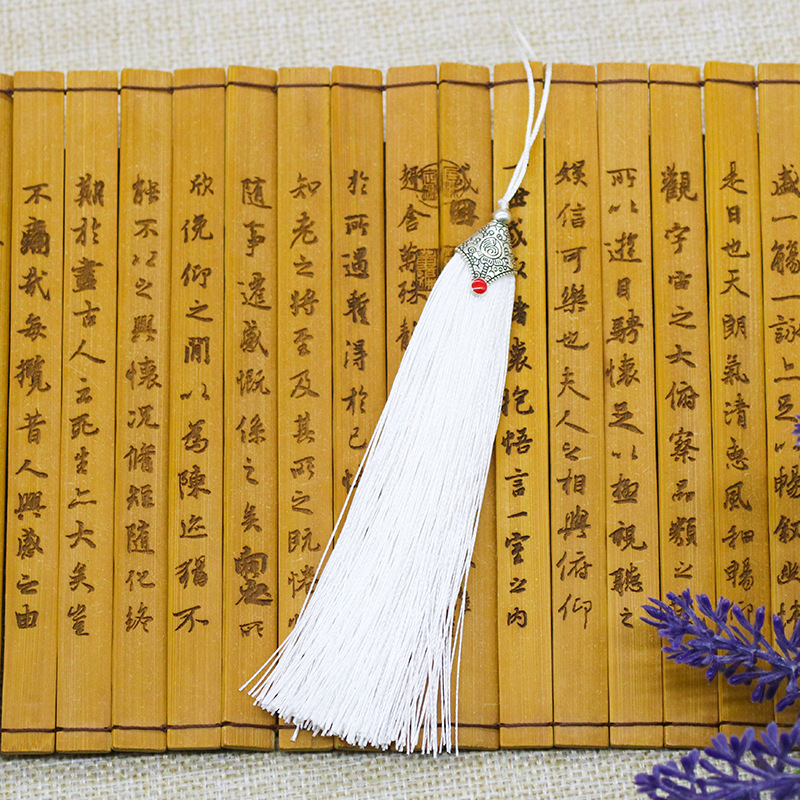 盛一觴一詠亦足以暢叙幽
是日也天朗氣清惠風和暢仰
觀宇宙之大俯察品類之
所以遊目騁懷足以極視聽之
娛信可樂也夫人之相與俯仰
一世或取諸懷抱悟言一室之內
趣舍萬殊靜
於所遇暫得於己
知老之將至及其所之既惓
隨事遷感慨係之矣向之所
欣俛仰之閒以為陳迹猶不
能不以之興懷況脩短隨化終
期於盡古人云死生亦大矣豈
不痛哉每攬昔人興感之由